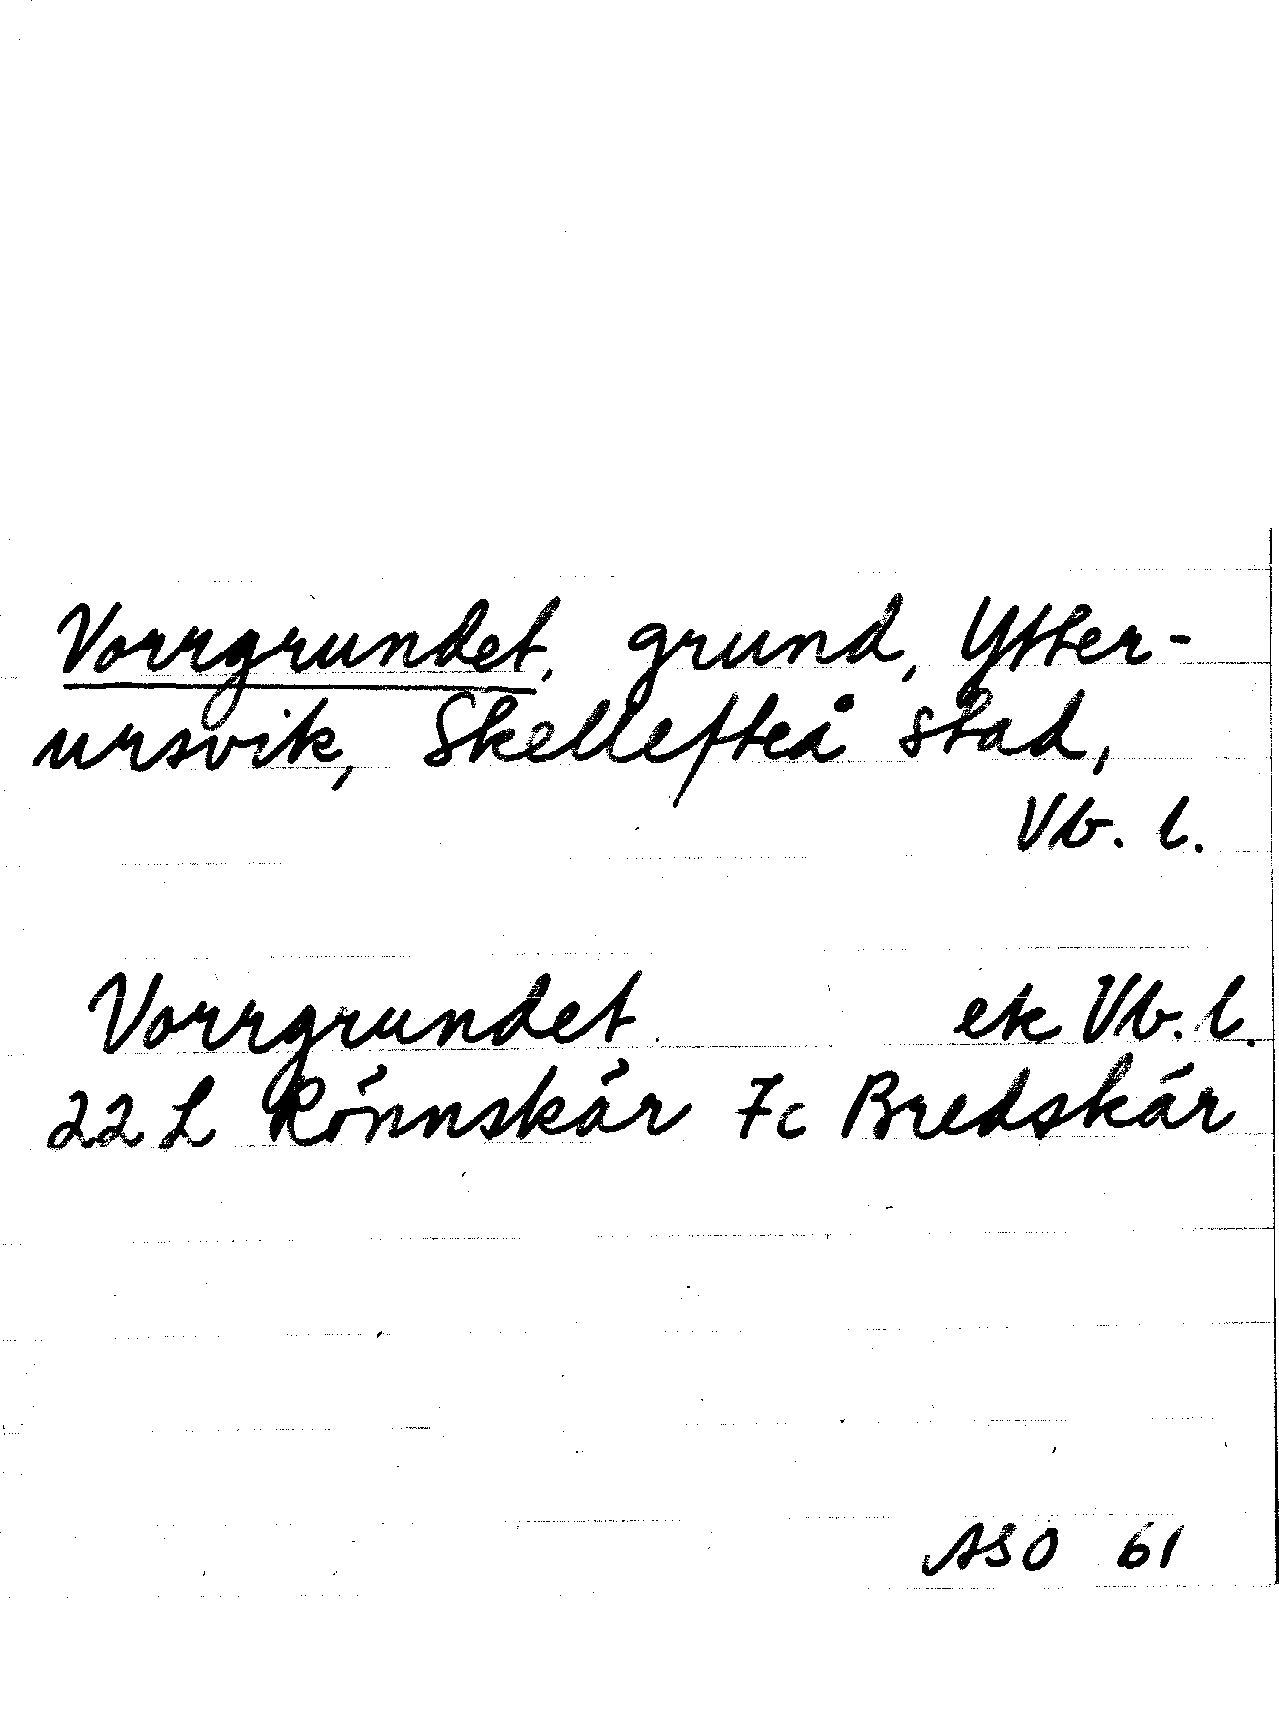 Vorrgrundet, grund, Ytter-
ursvik, Skellefteå stad,
Vb. l.
Vorrgrundet ek Vb. l.
22 L Rönnskär 7c Bredskär
ASO 61